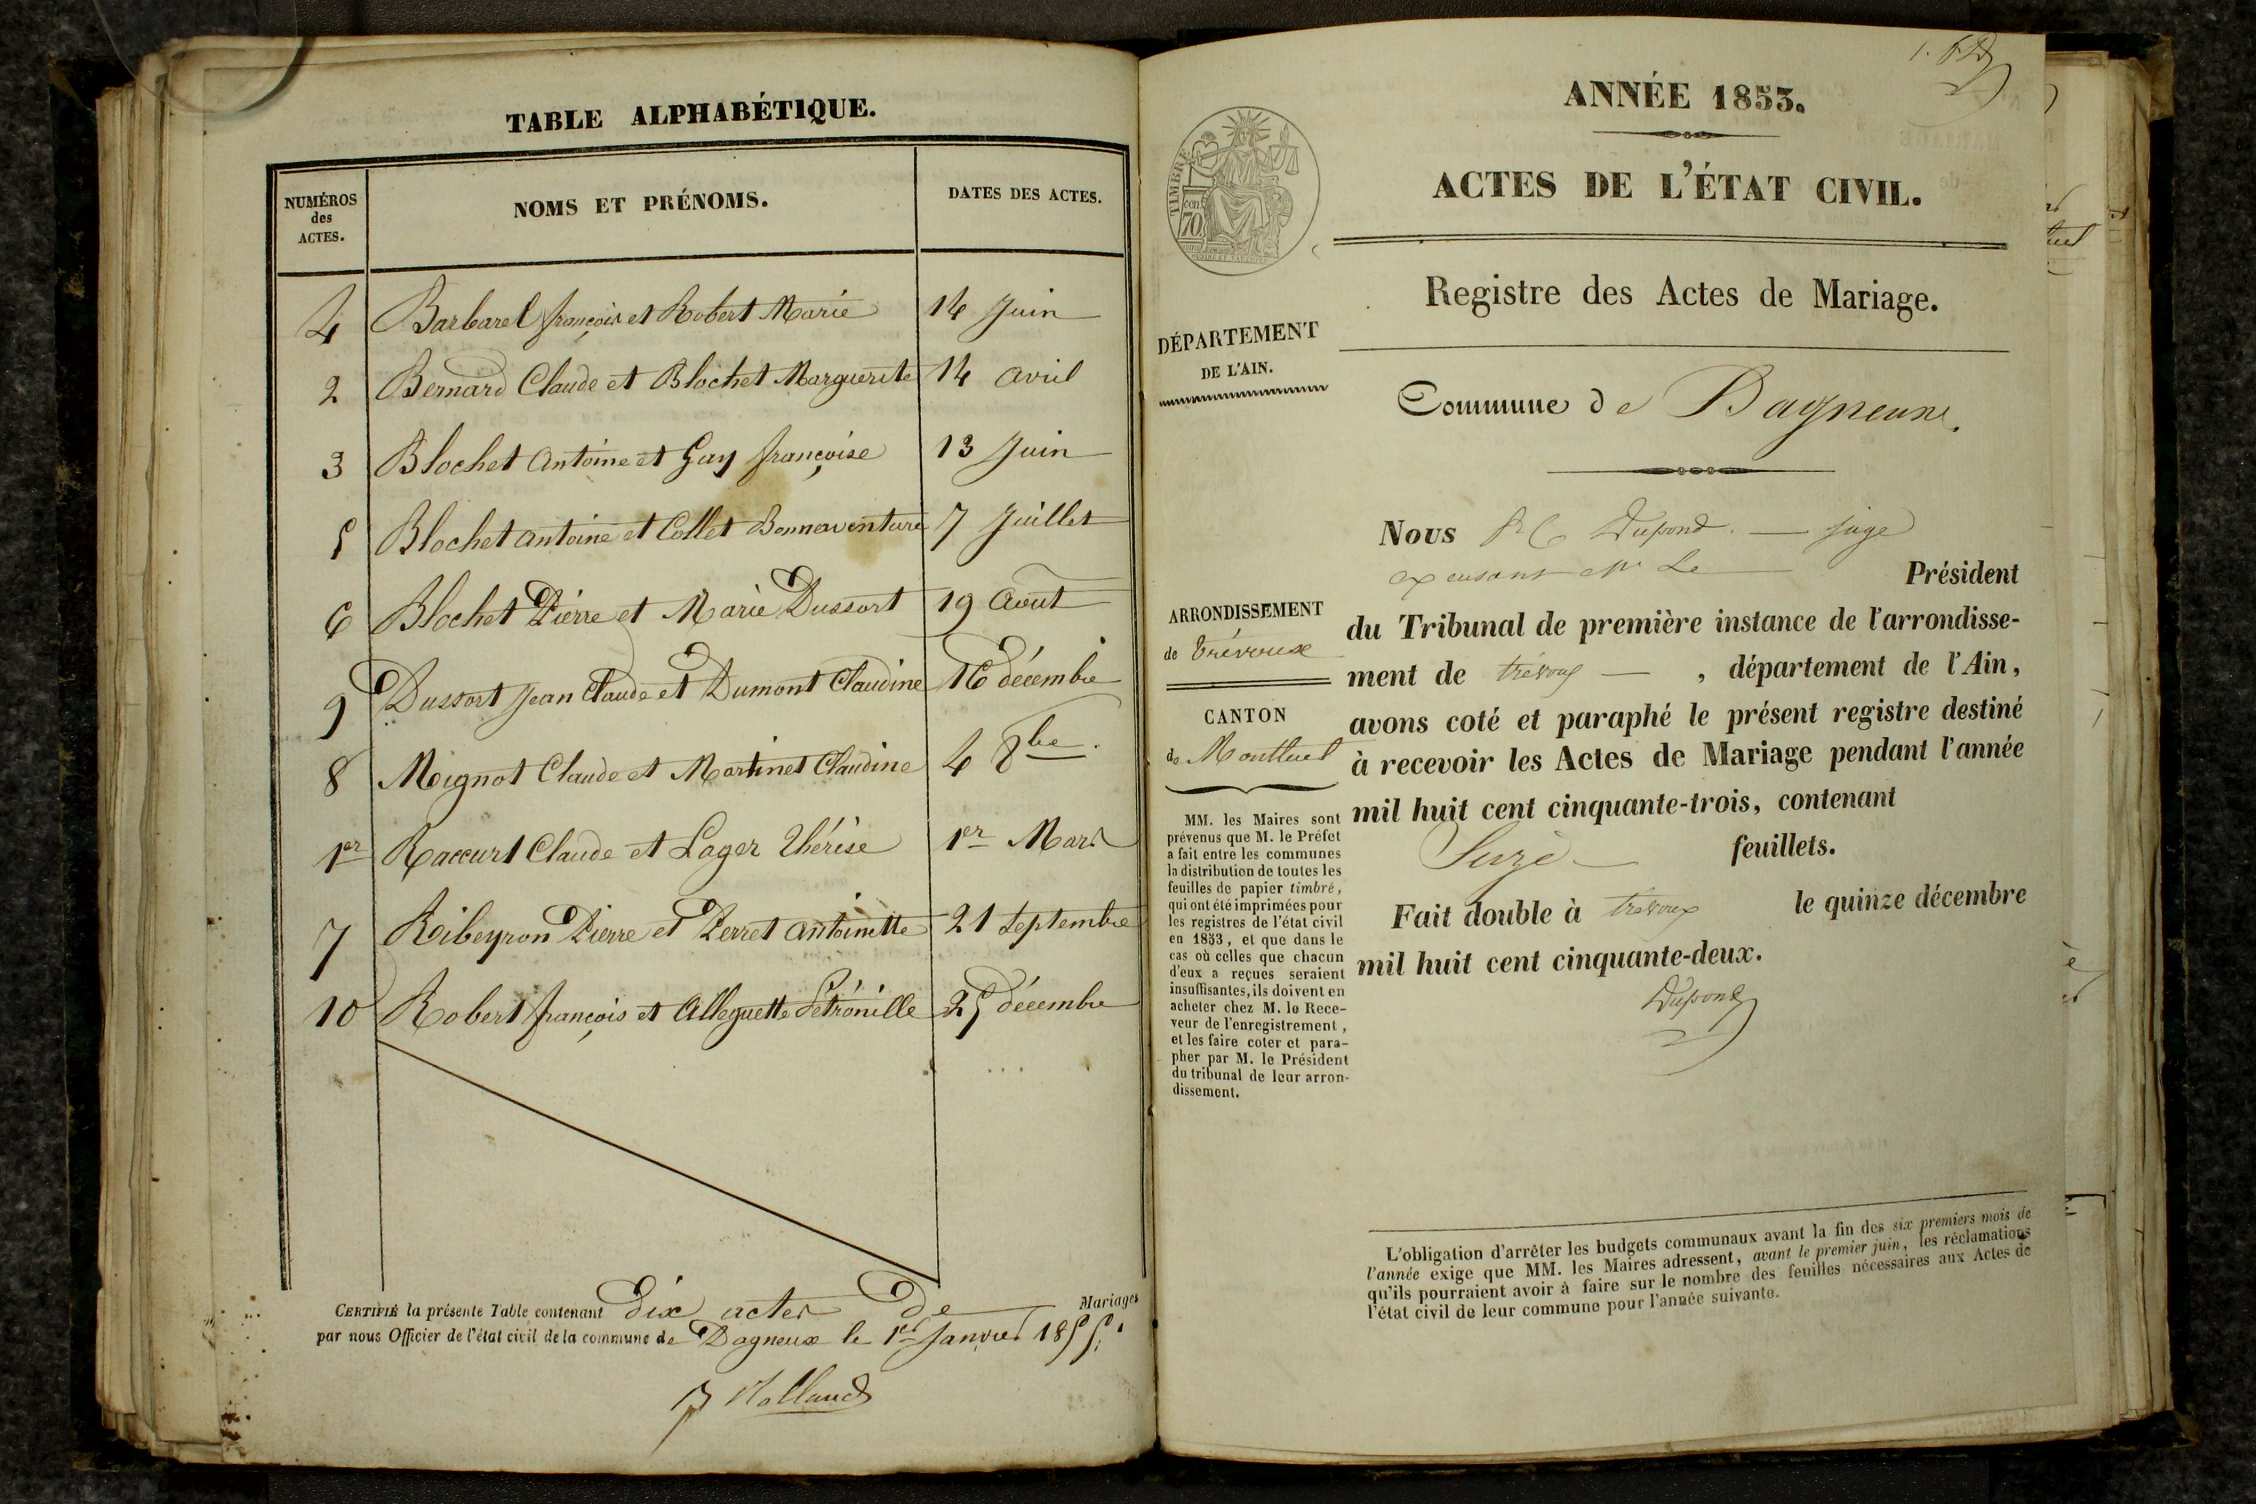 TABLE ALPHABÉTIQUE.
NUMÉROS des ACTES.
NOMS ET PRÉNOMS.
DATES DES ACTES.
4 Barbarel françois et Robert Marie 14 Juin
2 Bernard Claude et Blochet Marguerite 14 avril
3 Blochet Antoine et Guy françoise 13 Juin
5 Blochet antoine et Collet Bonnaventure 7 Juillet
6 Blochet Pierre et Marie Dussort 19 Aout
9 Dussort Jean Claude et Dumont Claudine 16 décembre
8 Mignot Claude et Martinet Claudine 4 8bre.
1er Raccurt Claude et Lager Thérèse 1er Mars
7 Ribeyron Pierre et Perret antoinette 21 Septembre
10 Robert françois et Alleguette Pétronille 25 décembre
CERTIFIÉ la présente Table contenant dix actes de Mariages
par nous Officier de l'état civil de la commune de Dagneux le 1er Janvier 1855.
ANNÉE 1853.
ACTES DE L'ÉTAT CIVIL.
TIMBRE
cen. 70
Registre des Actes de Mariage.
DÉPARTEMENT
DE L'AIN.
Commune de Dagneux.
ARRONDISSEMENT
de Trévoux
CANTON
de Montluel
MM. les Maires sont
prévenus que M. le Préfet
a fait entre les communes
la distribution de toutes les
feuilles de papier timbré,
qui ont été imprimées pour
les registres de l'état civil
en 1853, et que dans le
cas où celles que chacun
d'eux a reçues seraient
insuffisantes, ils doivent en
acheter chez M. le Rece-
veur de l'enregistrement,
et les faire coter et para-
pher par M. le Président
du tribunal de leur arron-
dissement.
Nous Dupond. juge
Le Président
du Tribunal de première instance de l'arrondisse-
ment de trévoux, département de l'Ain,
avons coté et paraphé le présent registre destiné
à recevoir les Actes de Mariage pendant l'année
mil huit cent cinquante-trois, contenant
feuillets.
Fait double à trévoux le quinze décembre
mil huit cent cinquante-deux.
Dupond
L'obligation d'arrêter les budgets communaux avant la fin des six premiers mois de
l'année exige que MM. les Maires adressent, avant le premier juin, les réclamations
qu'ils pourraient avoir à faire sur le nombre des feuilles nécessaires aux Actes de
l'état civil de leur commune pour l'année suivante.